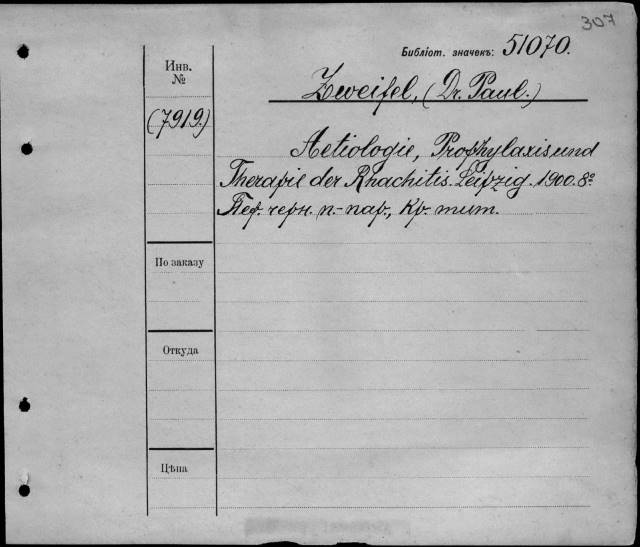 307
Библіот. значекъ: 51070.
Инв.
№
Zweifel, (Dr. Paul.)
(7919)
Aetiologie, Prophylaxis und
Therapie der Rhachitis. Leipzig. 1900. 8º
Пер. черн. п.-пар., кр. тит.
По заказу
Откуда
Цѣна